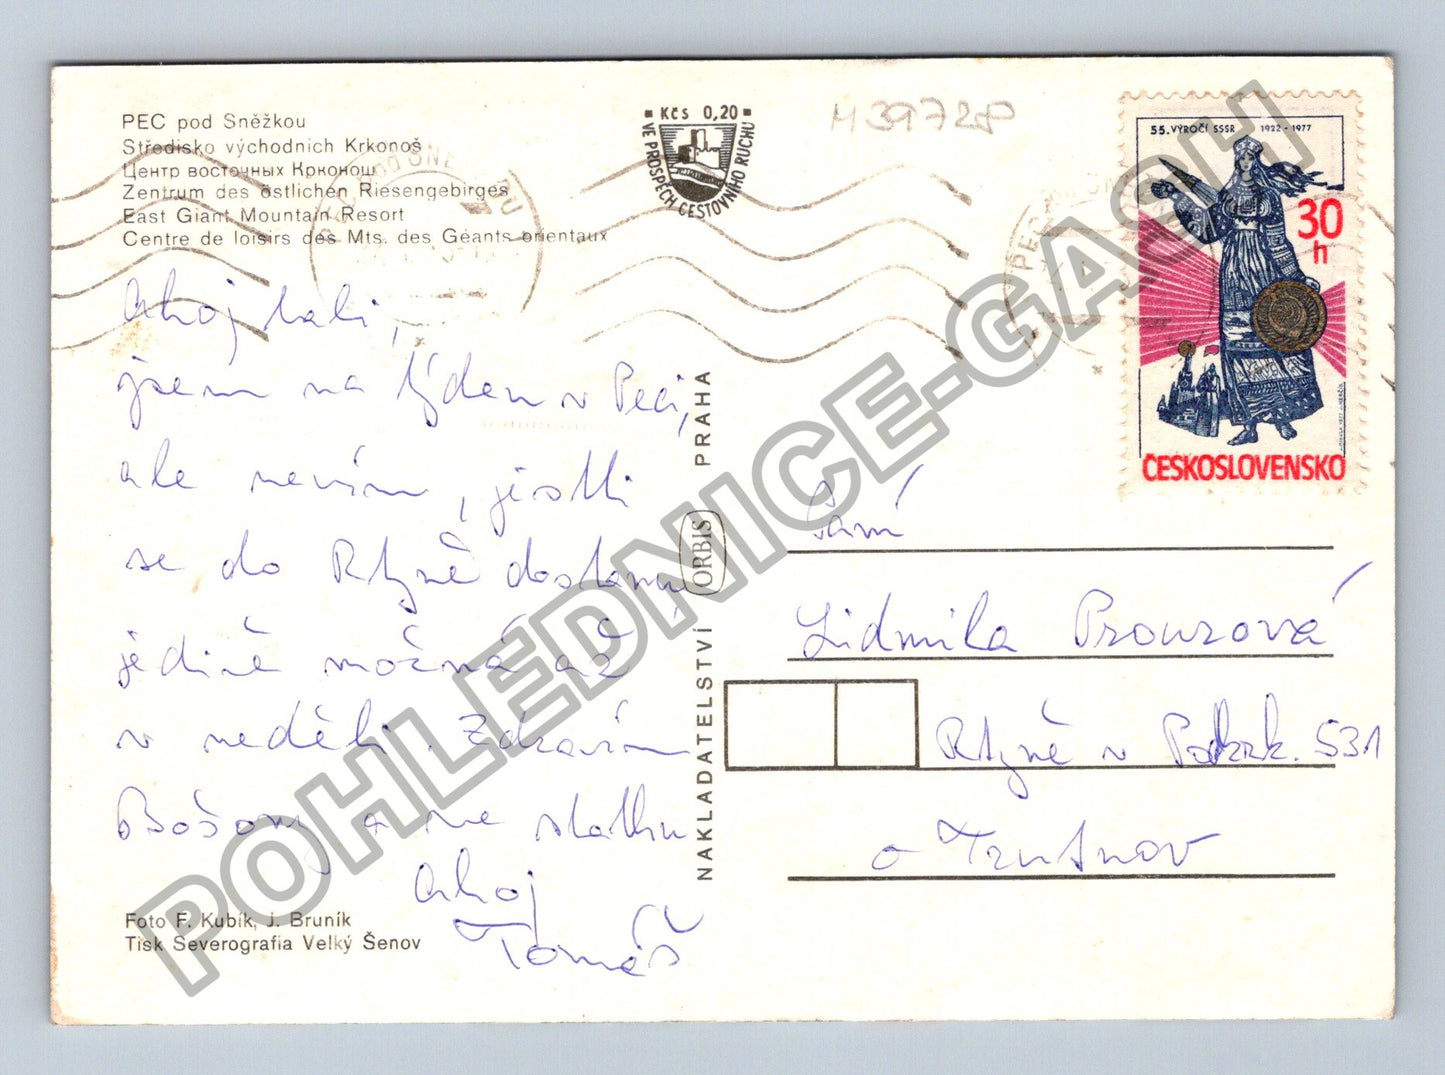 PEC pod Sněžkou
Středisko východních Krkonoš
Центр восточных Крконош
Zentrum des östlichen Riesengebirges
East Giant Mountain Resort
Centre de loisirs des Mts. des Géants orientaux
Kčs 0,20
VE PROSPĚCH CESTOVNÍHO RUCHU
M39728
55. VÝROČÍ SSSR 1922 - 1977
30
h
ČESKOSLOVENSKO
Ahoj
jsem na týden v Peci,
ale nevím, jestli
se do Rtyně dostanu
jedině možná až
v neděli. Zdravím
a
Ahoj
Tomáš
Foto F. Kubík, J. Bruník
Tisk Severografia Velký Šenov
NAKLADATELSTVÍ ORBIS PRAHA
Paní
Lidmila Prouzová
Rtyně v Podkrk. 531
o Trutnov
POHLEDNICE-GASH